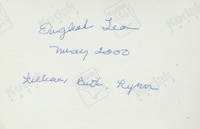 English Tea
May 2000
Lillian, Ruth, Lynn
Kodak